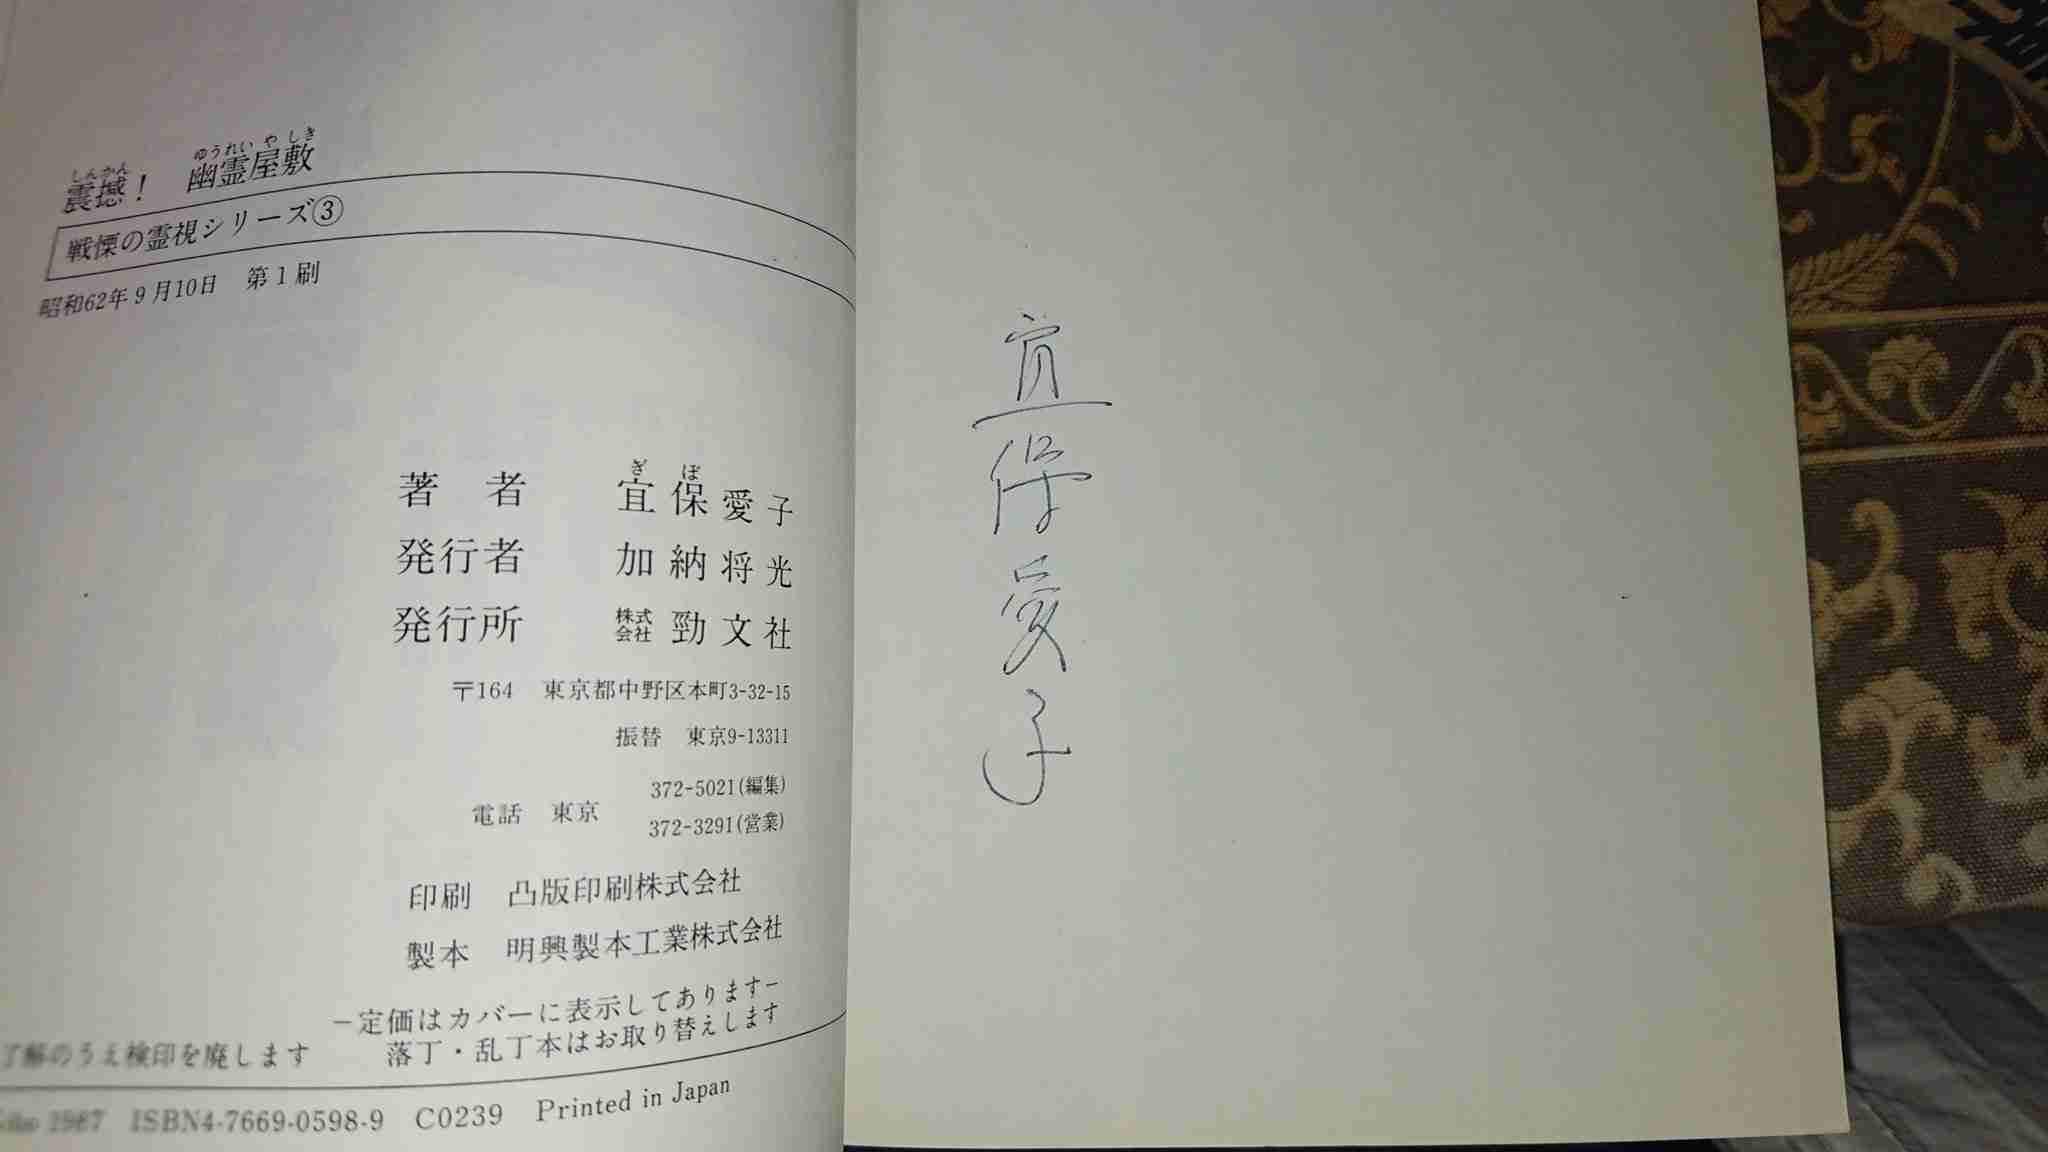 しんかん　ゆうれいやしき
震撼！　幽霊屋敷
戦慄の霊視シリーズ③
昭和62年9月10日　第1刷
ぎ　ぼ
著　者　宜保愛子
発行者　加納将光
発行所　株式会社 勁文社
〒164　東京都中野区本町3-32-15
振替　東京9-13311
電話　東京　372-5021(編集)
372-3291(営業)
印刷　凸版印刷株式会社
製本　明興製本工業株式会社
−定価はカバーに表示してあります−
了解のうえ検印を廃します　落丁・乱丁本はお取り替えします
1987　ISBN4-7669-0598-9　C0239　Printed in Japan
宜保愛子